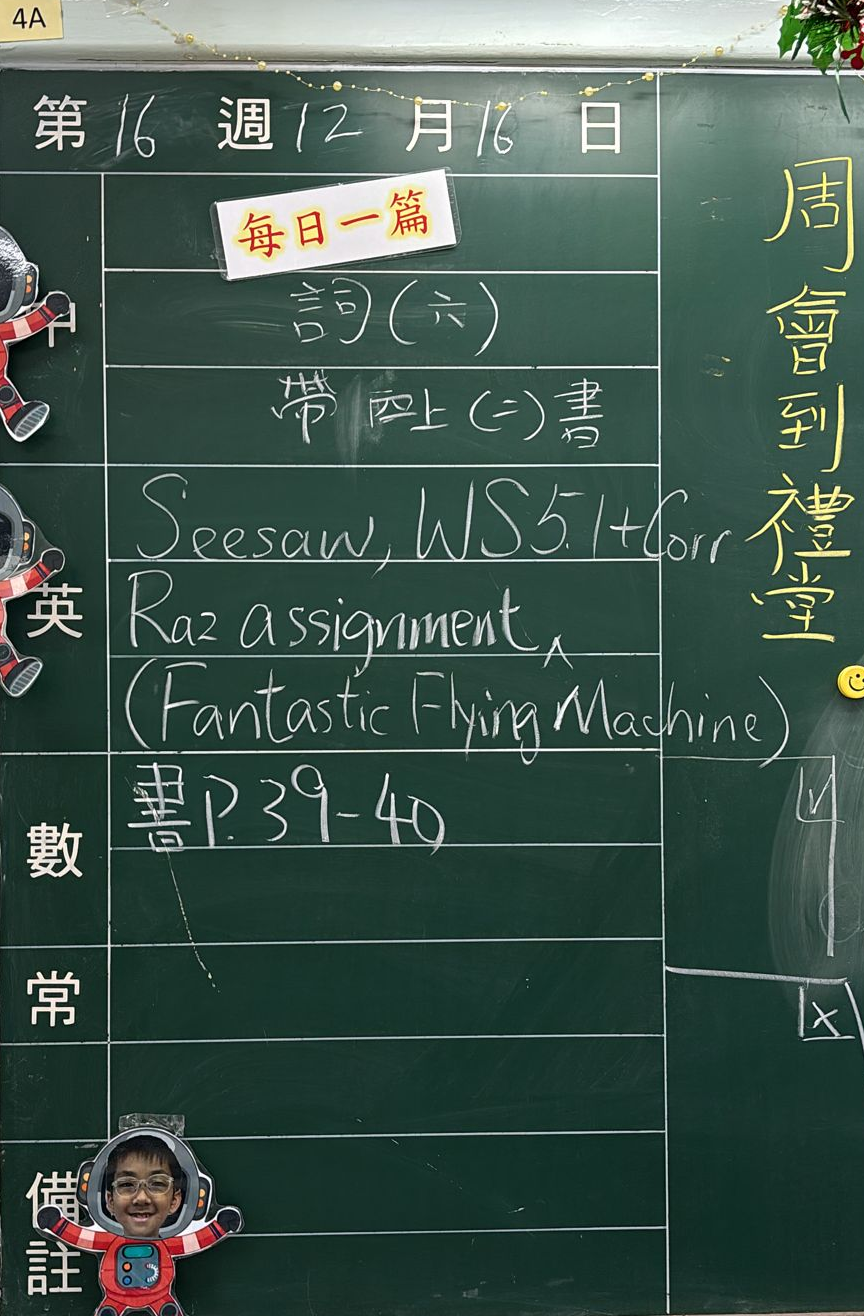 4A
第 16 週 12 月 16 日
每日一篇
詞(六)
中
帶 四上 (二) 書
Seesaw, WS5.1+Corr
英
Raz assignment
(Fantastic Flying Machine)
數
書P.39-40
常
備註
周會到禮堂